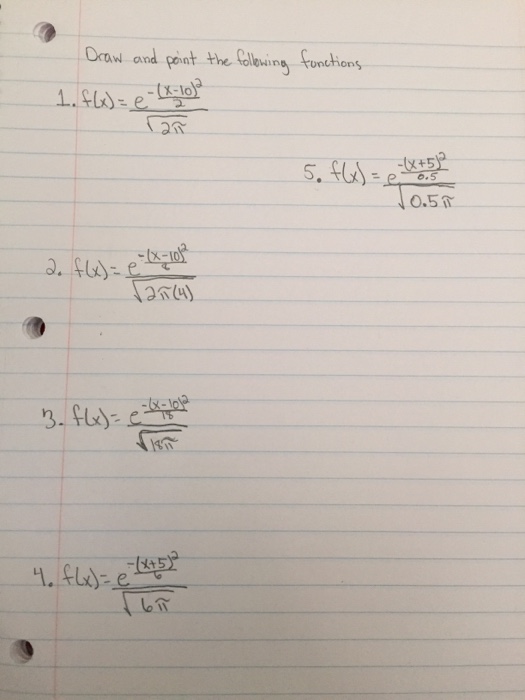 Draw and point the following functions
1. f(x) = e^(-(x-10)²/2) / √2π
5. f(x) = e^(-(x+5)²/0.5) / √0.5π
2. f(x) = e^(-(x-10)²/8) / √2π(4)
3. f(x) = e^(-(x-10)²/18) / √18π
4. f(x) = e^(-(x+5)²/6) / √6π